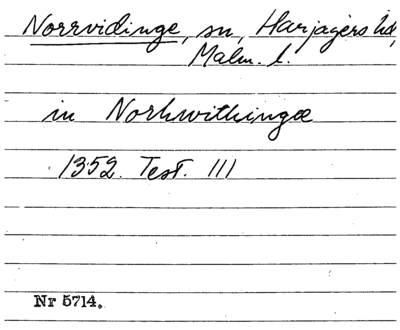 Norrvidinge, sn, Harjagers hd,
Malm. l.
in Norhwithingæ
1352. Test. III
Nr 5714.